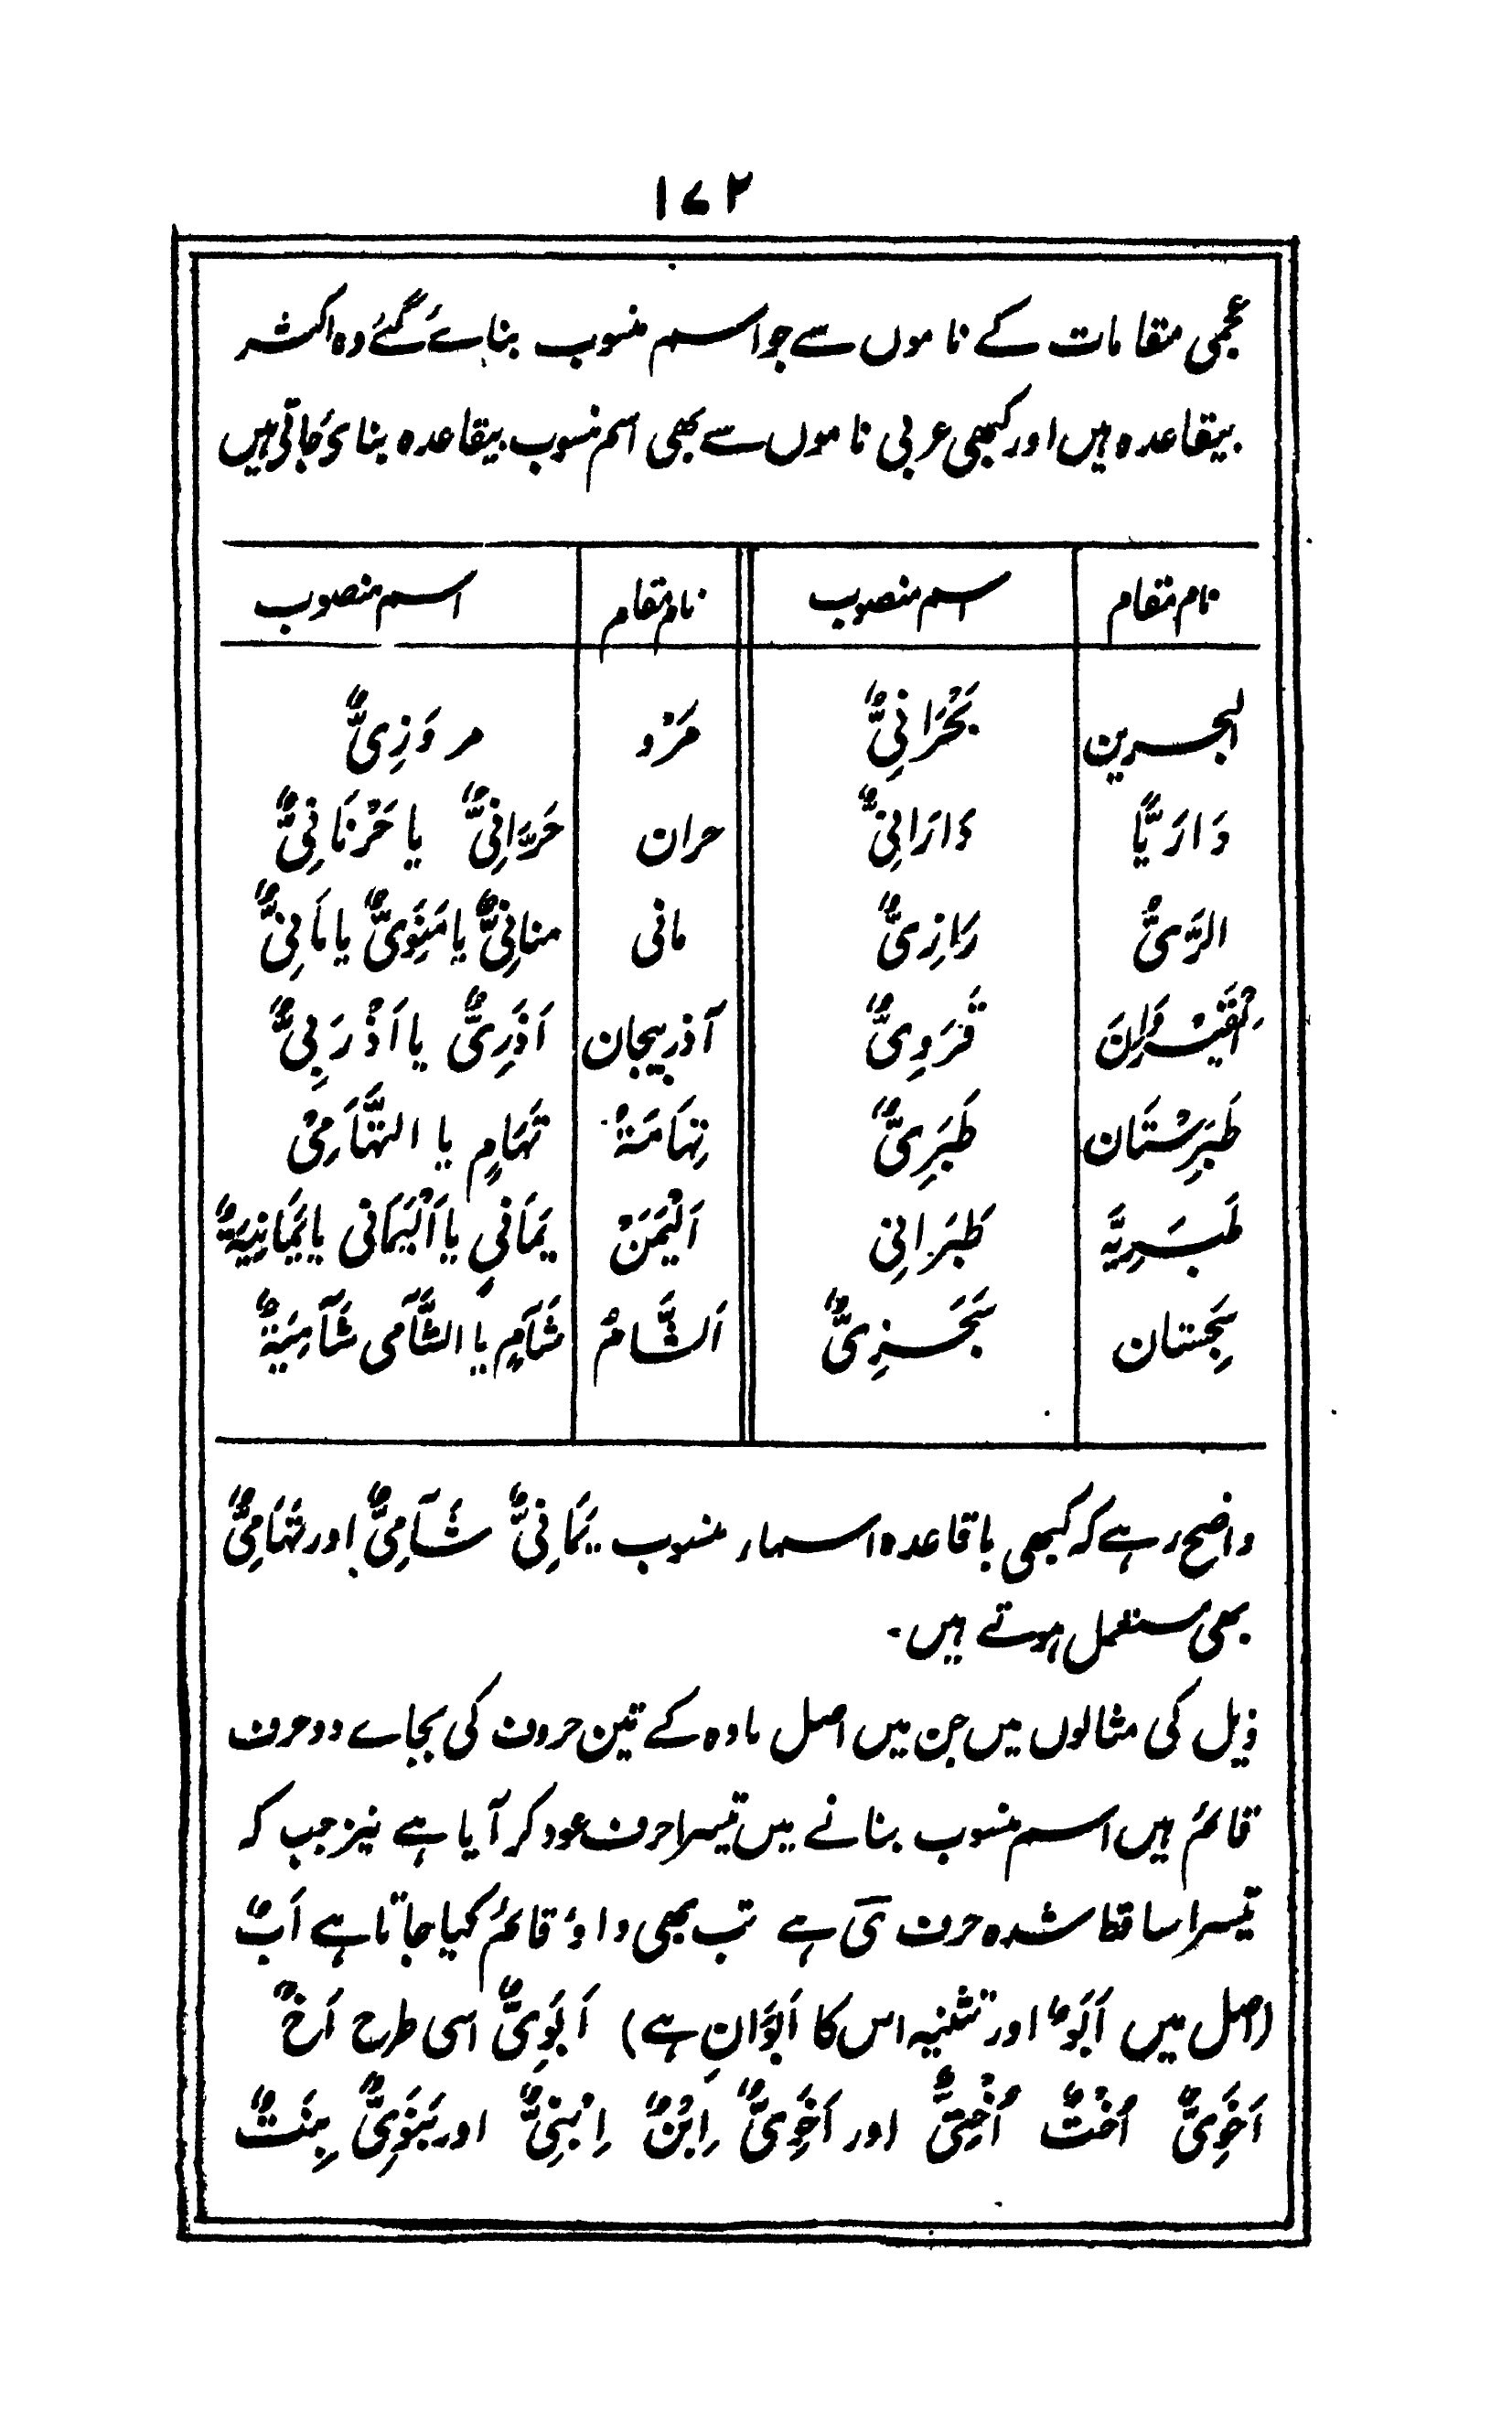 ۱۷۲
عجمی مقامات کے ناموں سے جو اسم منسوب بنائے گئے وہ اکثر
بیقاعدہ ہیں اور کبھی عربی ناموں سے بھی اسم منسوب بیقاعدہ بنائی جاتی ہیں
نام مقام اسم منصوب نام مقام اسم منصوب
البحرین بَحْرَانِیٌّ مَرْو مروَزِیٌّ
دَارَیَّا دَارَانِیٌّ حران حَرَّانِیٌّ یا حَرْنَانِیٌّ
الرَّیُّ رَازِیٌّ مانی منانِیٌّ یا مَنَوِیٌّ یا مَانِیٌّ
اَلْقَیْرَوَانَ قَرَوِیٌّ آذربیجان اَذَرِیٌّ یا اَذْرَبِیٌّ
طَبَرِسْتَان طَبَرِیٌّ تِهَامَةُ تَهَامٍ یا التَّهَامِیْ
طَبَرِیَّة طَبَرَانِی اَلْیَمَنْ یَمَانٍی یا اَلْیَمَانی یا یَمَانِیَةٌ
سِجِستان سَجَزِیٌّ اَلشَّامُ شَآمٍ یا الشَّآمی شَآمِیَةٌ
واضح رہے کہ کبھی باقاعدہ اسماء منسوب یَمَنِیٌّ شَآمِیٌّ اور تَهَامِیٌّ
بھی مستعمل ہوتے ہیں۔
ذیل کی مثالوں میں جن میں اصل مادہ کے تین حروف کی بجاے دو حرف
قائم ہیں اسم منسوب بنانے میں تیسرا حرف عود کر آیا ہے نیز جب کہ
تیسرا ساقط شدہ حرف یَ ہے تب بھی واؤ قائم کیا جاتا ہے اَبٌ
(اصل میں اَبَوٌ اور تثنیہ اس کا اَبَوَانِ ہے) اَبَوِیٌّ اسی طرح اَخٌ
اَخَوِیٌّ اُخْتٌ اُخْتِیٌّ اور اَخَوِیٌّ اِبْنٌ اِبْنِیٌّ اور بَنَوِیٌّ بِنَتٌ